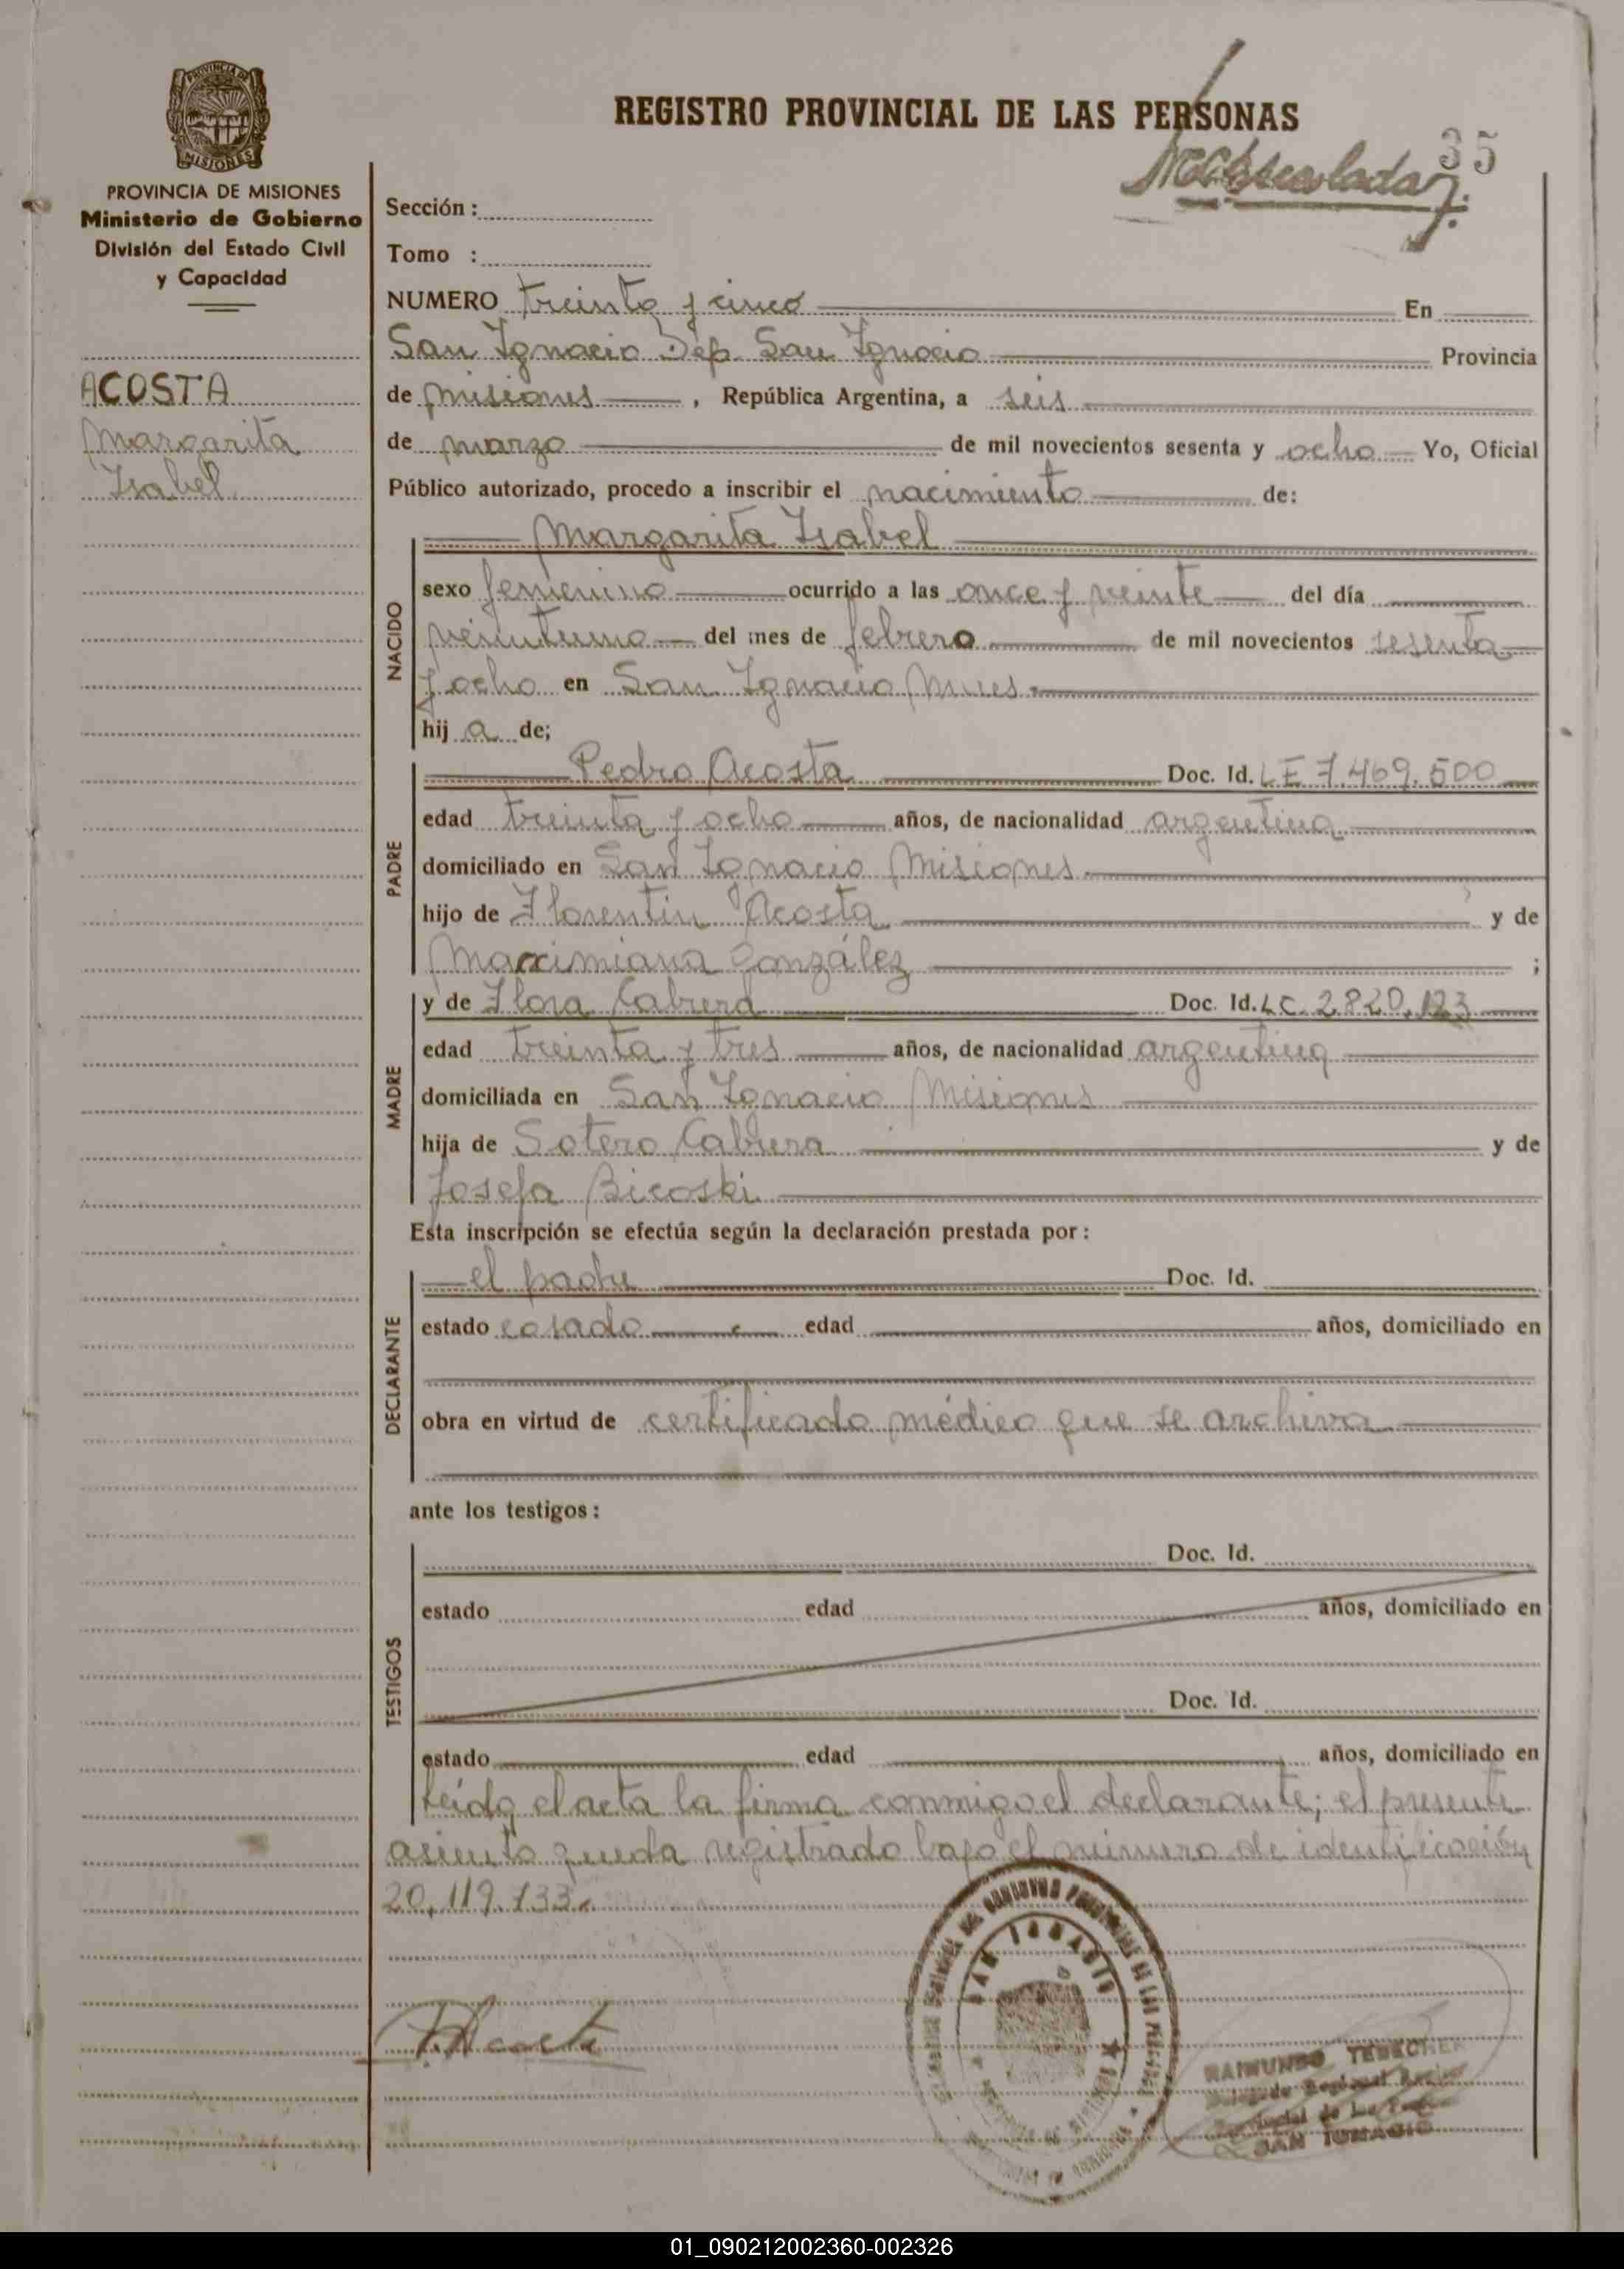 PROVINCIA DE
MISIONES
PROVINCIA DE MISIONES
Ministerio de Gobierno
División del Estado Civil
y Capacidad
ACOSTA
Margarita
Isabel
REGISTRO PROVINCIAL DE LAS PERSONAS
35
Sección :
Tomo :
NUMERO treinta y cinco En
San Ignacio Dep. San Ignacio Provincia
de Misiones , República Argentina, a seis
de marzo de mil novecientos sesenta y ocho Yo, Oficial
Público autorizado, procedo a inscribir el nacimiento de:
Margarita Isabel
NACIDO
sexo femenino ocurrido a las once y veinte del día
veintiuno del mes de febrero de mil novecientos sesenta
y ocho en San Ignacio Mnes.
hij a de;
PADRE
Pedro Acosta Doc. Id. LE 7.469.500
edad treinta y ocho años, de nacionalidad argentina
domiciliado en San Ignacio Misiones
hijo de Florentin Acosta y de
Marximiana González ;
MADRE
y de Flora Cabrera Doc. Id. LC. 2.820.123
edad treinta y tres años, de nacionalidad argentina
domiciliada en San Ignacio Misiones
hija de Sotero Cabrera y de
Josefa Bicoski
Esta inscripción se efectúa según la declaración prestada por :
DECLARANTE
el padre Doc. Id.
estado casado edad años, domiciliado en
obra en virtud de certificado médico que se archiva
ante los testigos :
TESTIGOS
Doc. Id.
estado edad años, domiciliado en
Doc. Id.
estado edad años, domiciliado en
Leída el acta la firma conmigo el declarante; el presente
asiento queda registrado bajo el número de identificación
20.119.733.
P. Acosta
SAN IGNACIO
RAIMUNDO
SAN IGNACIO
01_090212002360-002326